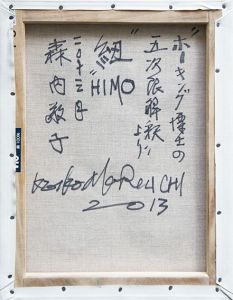 "ホーキング博士の
五次元解釈
より"
紐"
"HIMO"
二〇十三年
森内敬子
Keiko MoReuCHI
2013